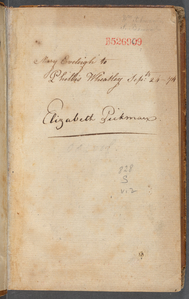 B526909
Mary Eveleigh to
Phillis Wheatley Sept. 24 - 74
Elizabeth Pickman.
828
S
v.2